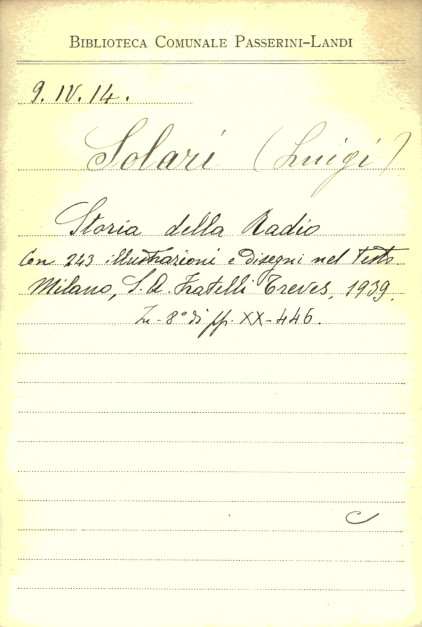 BIBLIOTECA COMUNALE PASSERINI-LANDI
9. IV. 14.
Solari (Luigi)
Storia della Radio
Con 243 illustrazioni e disegni nel testo
Milano, S. A. Fratelli Treves, 1939.
In-8° di pp. XX-446.